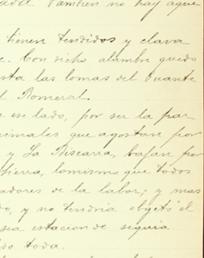 también no hay ague
tienen tendidos y clava
e. Con dicho alambre quedo
sta las lomas del Puante
l Romeral.
e ese lado, por ser la par
nimales que agostan por
y La Biscarra, bajan por
tierra, lo mismo que todos
adores de la labor; y mas
do, y no tendria objeto el
sia estacion de seguia.
so toda.